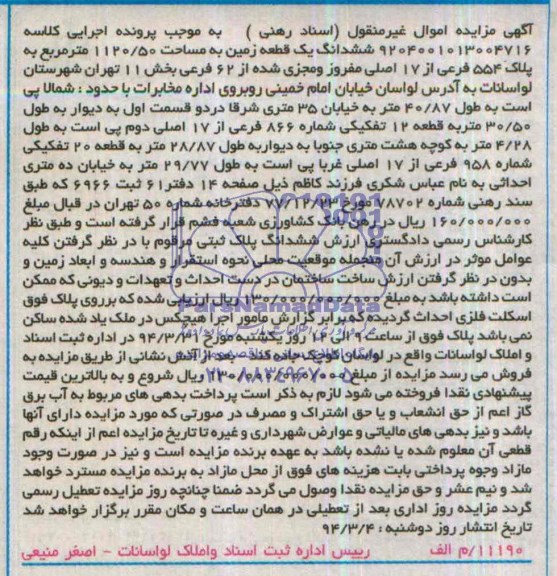 آگهی مزایده اموال غیرمنقول (اسناد رهنی ) به موجب پرونده اجرایی کلاسه
۹۲۰۴۰۰۱۰۱۳۰۰۴۷۱۶ ششدانگ یک قطعه زمین به مساحت ۱۱۲۰/۵۰ مترمربع به
پلاک ۵۵۴ فرعی از ۱۷ اصلی مفروز ومجزی شده از ۶۲ فرعی بخش ۱۱ تهران شهرستان
لواسانات به آدرس لواسان خیابان امام خمینی روبروی اداره مخابرات با حدود : شمالا پی
است به طول ۴۰/۸۷ متر به خیابان ۳۵ متری شرقا دردو قسمت اول به دیوار به طول
۳۰/۵۰ متربه قطعه ۱۲ تفکیکی شماره ۸۶۶ فرعی از ۱۷ اصلی دوم پی است به طول
۴/۲۸ متر به کوچه هشت متری جنوبا به دیواربه طول ۲۸/۸۷ متر به قطعه ۲۰ تفکیکی
شماره ۹۵۸ فرعی از ۱۷ اصلی غربا پی است به طول ۲۹/۷۷ متر به خیابان ده متری
احداثی به نام عباس شکری فرزند کاظم ذیل صفحه ۱۴ دفتر۶۱ ثبت ۶۹۶۶ که طبق
سند رهنی شماره ۷۸۷۰۲ مورخ دفترخانه شماره ۵۰ تهران در قبال مبلغ
۱۶۰/۰۰۰/۰۰۰ ریال در رهن بانک کشاورزی شعبه فشم قرار گرفته است و طبق نظر
کارشناس رسمی دادگستری ارزش ششدانگ پلاک ثبتی مرقوم با در نظر گرفتن کلیه
عوامل موثر در ارزش آن منجمله موقعیت محلی نحوه استقرار و هندسه و ابعاد زمین و
بدون در نظر گرفتن ارزش ساخت ساختمان در دست احداث و تعهدات و دیونی که ممکن
است داشته باشد به مبلغ ریال ارزیابی شده که برروی پلاک فوق
اسکلت فلزی احداث گردیده که برابر گزارش مامور اجرا هیچکس در ملک یاد شده ساکن
نمی باشد پلاک فوق از ساعت ۹ الی ۱۲ روز یکشنبه مورخ ۹۴/۳/۳۱ در اداره ثبت اسناد
و املاک لواسانات واقع در لواسان کوچک جاده کند از طریق مزایده به
فروش می رسد مزایده از مبلغ ریال شروع و به بالاترین قیمت
پیشنهادی نقدا فروخته می شود لازم به ذکر است پرداخت بدهی های مربوط به آب برق
گاز اعم از حق انشعاب و یا حق اشتراک و مصرف در صورتی که مورد مزایده دارای آنها
باشد و نیز بدهی های مالیاتی و عوارض شهرداری و غیره تا تاریخ مزایده اعم از اینکه رقم
قطعی آن معلوم شده یا نشده باشد به عهده برنده مزایده است و نیز در صورت وجود
مازاد وجوه پرداختی بابت هزینه های فوق از محل مازاد به برنده مزایده مسترد خواهد
شد و نیم عشر و حق مزایده نقدا وصول می گردد ضمنا چنانچه روز مزایده تعطیل رسمی
گردد مزایده روز اداری بعد از تعطیلی در همان ساعت و مکان مقرر برگزار خواهد شد
تاریخ انتشار روز دوشنبه : ۹۴/۳/۴
۱۱۱۹۰/م الف رییس اداره ثبت اسناد واملاک لواسانات - اصغر منیعی
ParsNamadData